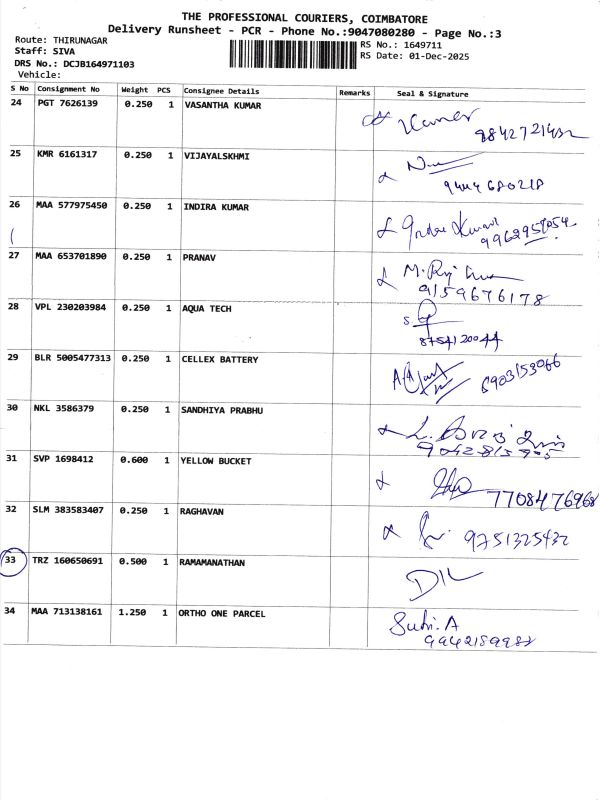 THE PROFESSIONAL COURIERS, COIMBATORE
Delivery Runsheet - PCR - Phone No.:9047080280 - Page No.:3
Route: THIRUNAGAR
RS No.: 1649711
Staff: SIVA
RS Date: 01-Dec-2025
DRS No.: DCJB164971103
Vehicle:
S No Consignment No Weight PCS Consignee Details Remarks Seal & Signature
24 PGT 7626139 0.250 1 VASANTHA KUMAR
9842721432
25 KMR 6161317 0.250 1 VIJAYALSKHMI
9444680218
26 MAA 577975450 0.250 1 INDIRA KUMAR Indra Kumar
27 MAA 653701890 0.250 1 PRANAV
9159676178
28 VPL 230203984 0.250 1 AQUA TECH
8754120044
29 BLR 5005477313 0.250 1 CELLEX BATTERY
30 NKL 3586379 0.250 1 SANDHIYA PRABHU
31 SVP 1698412 0.600 1 YELLOW BUCKET
7708476968
32 SLM 383583407 0.250 1 RAGHAVAN 9751325432
33 TRZ 160650691 0.500 1 RAMAMANATHAN DIL
34 MAA 713138161 1.250 1 ORTHO ONE PARCEL